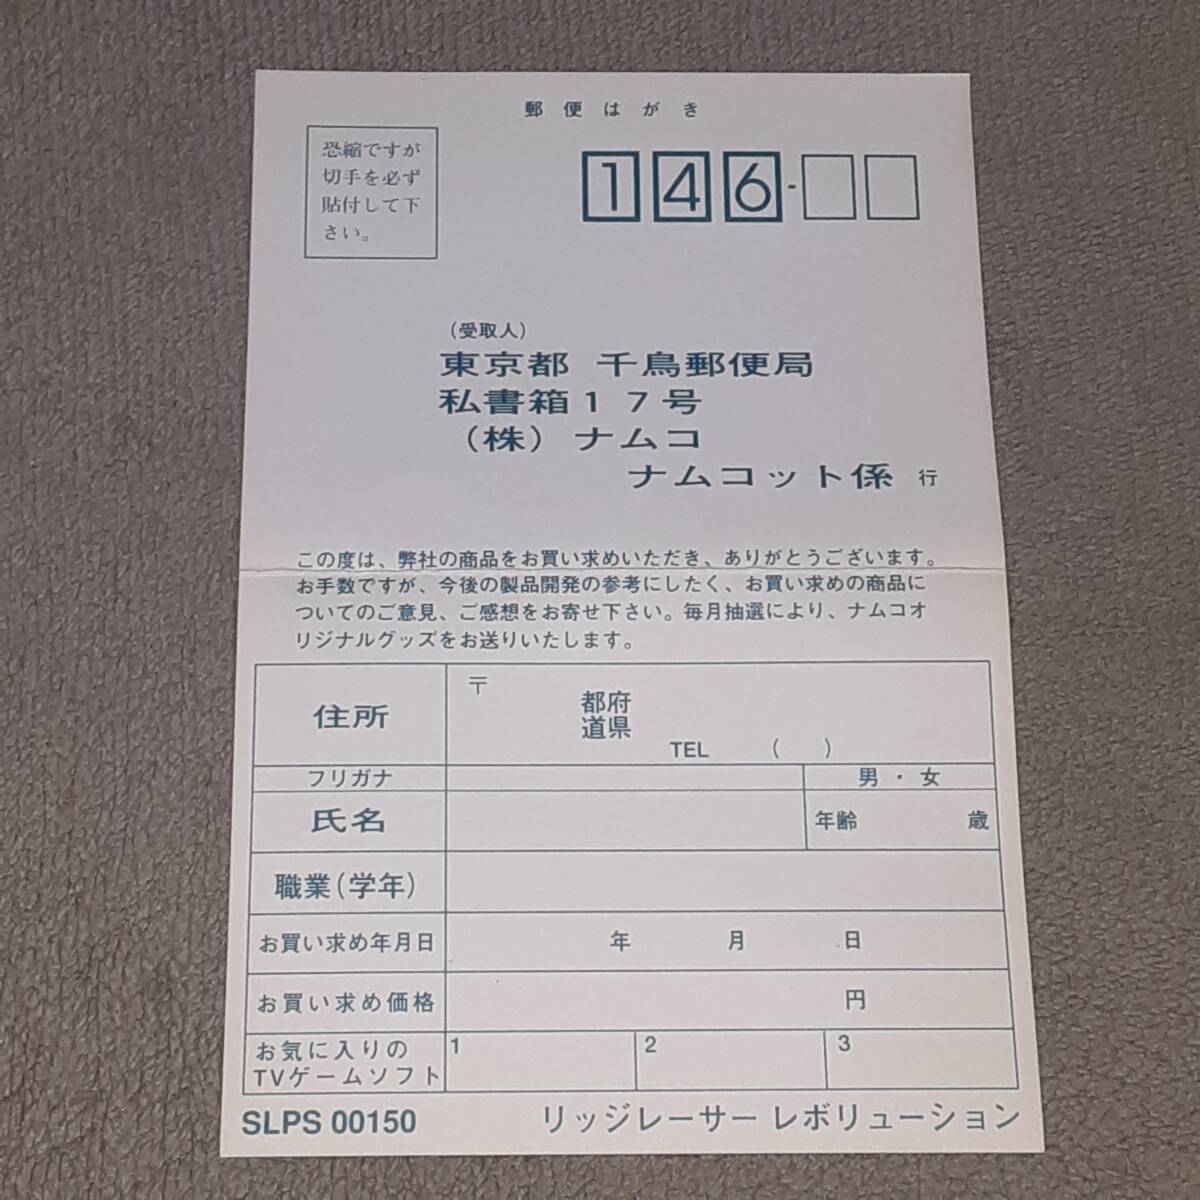 郵便はがき
恐縮ですが
切手を必ず
貼付して下
さい。
146-
(受取人)
東京都 千鳥郵便局
私書箱17号
(株)ナムコ
ナムコット係 行
この度は、弊社の商品をお買い求めいただき、ありがとうございます。
お手数ですが、今後の製品開発の参考にしたく、お買い求めの商品に
ついてのご意見、ご感想をお寄せ下さい。毎月抽選により、ナムコオ
リジナルグッズをお送りいたします。
住所
〒
都府
道県
TEL ( )
フリガナ
男・女
氏名
年齢 歳
職業(学年)
お買い求め年月日
年 月 日
お買い求め価格
円
お気に入りの
TVゲームソフト
1
2
3
SLPS 00150
リッジレーサー レボリューション